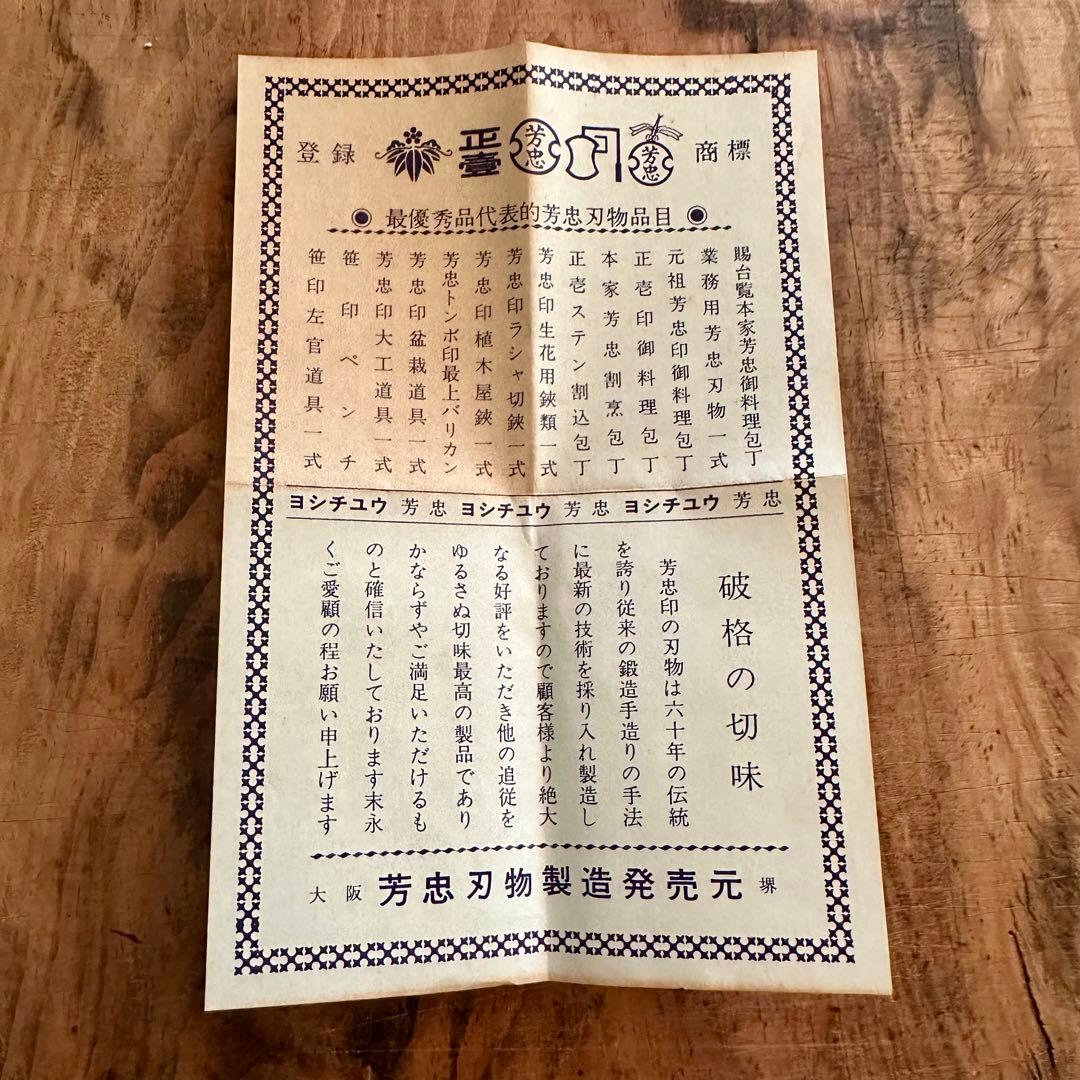 登録 正壹 芳忠 芳忠 商標
最優秀品代表的芳忠刃物品目
賜台覧本家芳忠御料理包丁
業務用芳忠刃物一式
元祖芳忠印御料理包丁
正壱印御料理包丁
本家芳忠割烹包丁
正壱ステン割込包丁
芳忠印生花用鋏類一式
芳忠印ラシャ切鋏一式
芳忠印植木屋鋏一式
芳忠トンボ印最上バリカン
芳忠印盆栽道具一式
芳忠印大工道具一式
笹印ペンチ
笹印左官道具一式
ヨシチユウ 芳忠 ヨシチユウ 芳忠 ヨシチユウ 芳忠
破格の切味
芳忠印の刃物は六十年の伝統
を誇り従来の鍛造手造りの手法
に最新の技術を採り入れ製造し
ておりますので顧客様より絶大
なる好評をいただき他の追従を
ゆるさぬ切味最高の製品であり
かならずやご満足いただけるも
のと確信いたしております末永
くご愛顧の程お願い申上げます
大阪 芳忠刃物製造発売元 堺